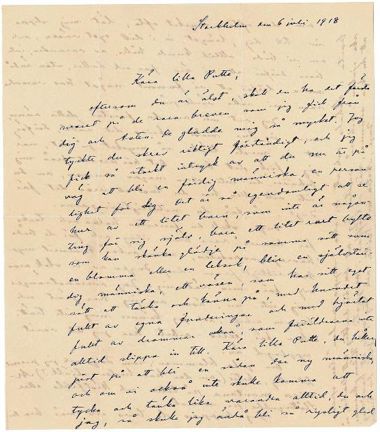 Stockholm den 6 juli 1918
Kära lilla Putte,
eftersom du är äldst, skall du ha det första
svaret på de rara breven som jag fick från
dig och Boten. De gladde mig så mycket. Jag
tyckte du skrev riktigt förståndigt, och jag
fick så starkt intryck av att du nu är på
väg att bli en färdig människa, en person-
lighet för sig. Det är så egendomligt att se
hur av ett litet barn, som inte är någon-
ting för sig själv, bara ett litet rart bylte
som kan skänka glädje på samma sätt som
en blomma eller en leksak, blir en självstän-
dig människa, ett väsen, som har sitt eget
sätt att tänka och känna på, med huvudet
fullt av egna funderingar och med hjärtat
fullt av drömmar också, som föräldrarna inte
alltid slippa in till. Kära lilla Putte, du håller
just på att bli en sådan där ny människa,
och om vi också inte skulle komma att
tycka och tänka lika varandra alltid, du och
jag, så skulle jag ändå bli så rysligt glad